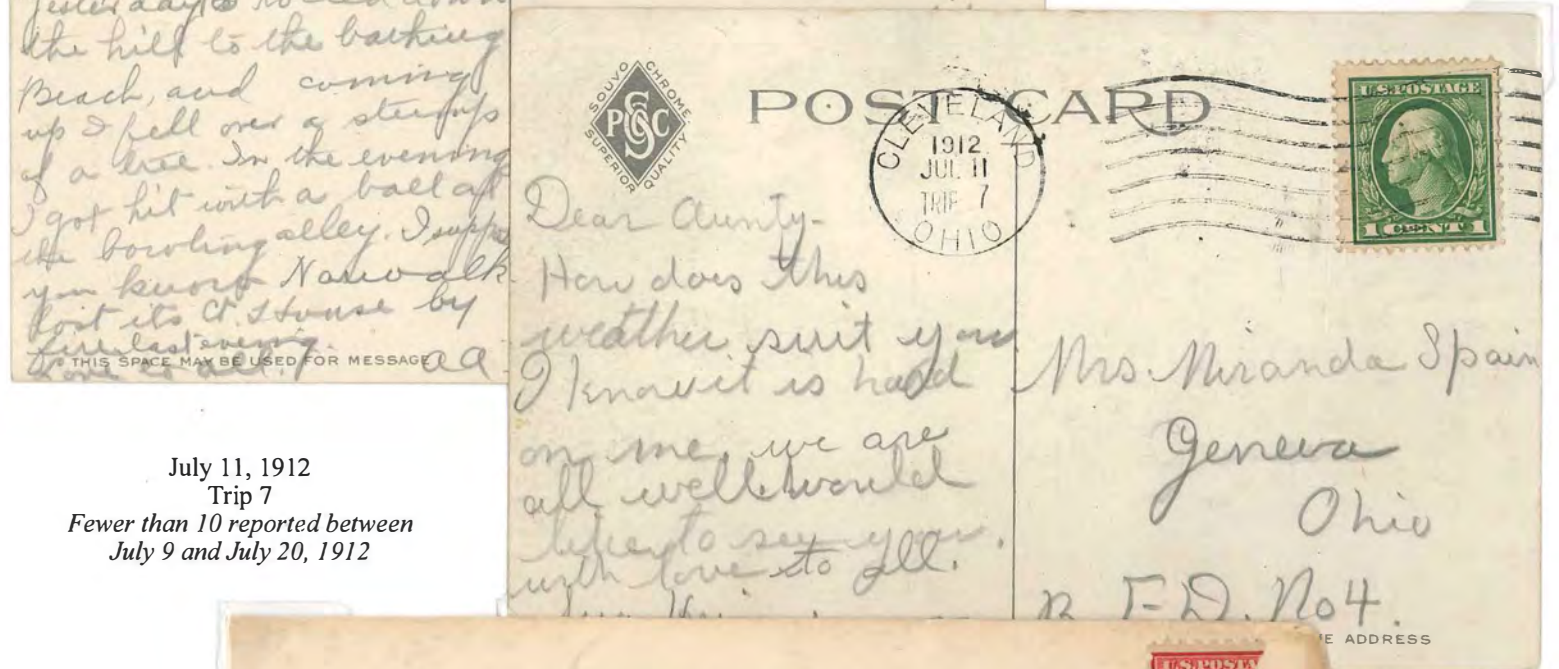 the hill to the bathing
Beach, and coming
up I fell over a stumps
of a tree. In the evening
I got hit with a ball at
the bowling alley. I suppo
you know Norwalk
lost its Ct. House by
fire last evening.
Love to all.
THIS SPACE MAY BE USED FOR MESSAGE
July 11, 1912
Trip 7
Fewer than 10 reported between
July 9 and July 20, 1912
SOUVO CHROME
PCSC
SUPERIOR QUALITY
POST CARD
CLEVELAND
1912
JUL 11
TRIP 7
OHIO
U.S. POSTAGE
1 CENT 1
Dear Aunty-
How does this
weather suit you
I know it is hard
on me, we are
all well & would
like to see you.
with love to all.
Mrs. Miranda Spain
Geneva
Ohio
R F.D. No 4.
E ADDRESS
U.S. POSTA